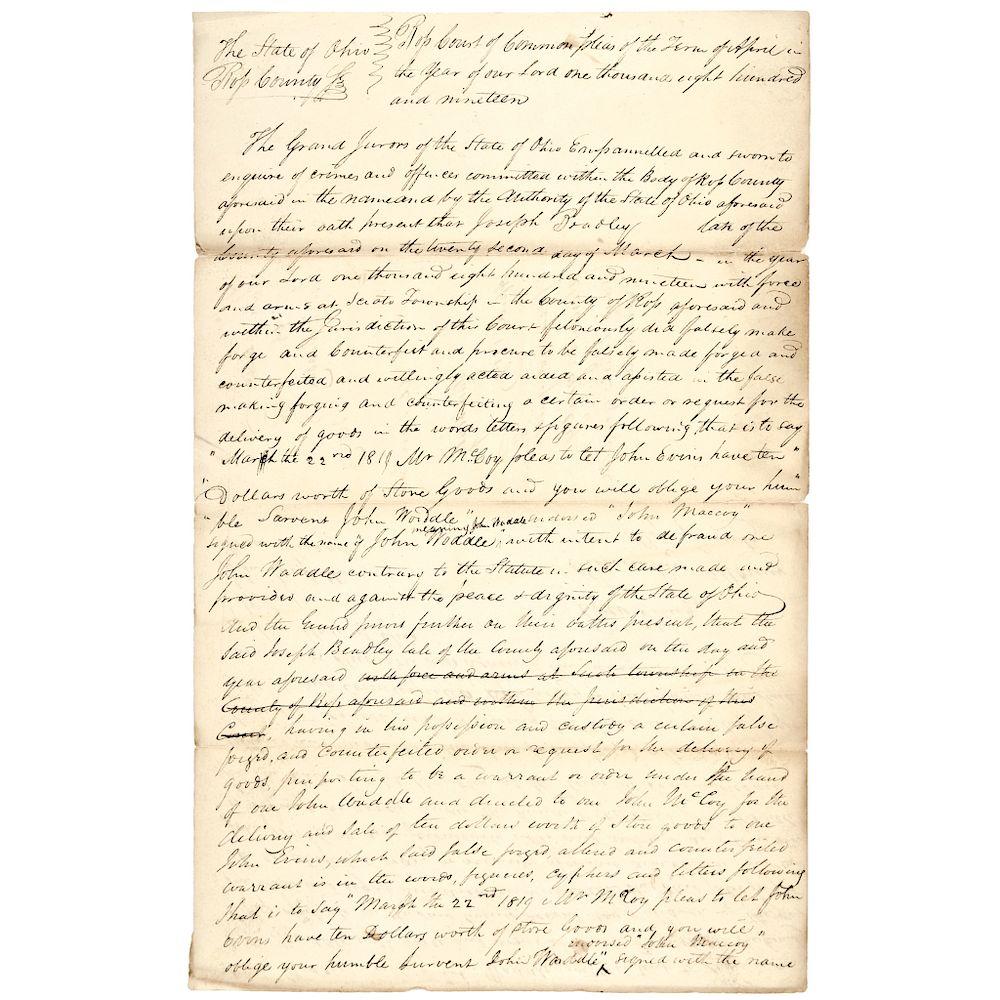 The State of Ohio
Ross County Ss
Ross Court of Common pleas of the Term of April in
the Year of our Lord one thousand eight hundred
and nineteen
The Grand Jurors of the State of Ohio Empannelled and sworn to
enquire of crimes and offences committed within the Body of Ross County
aforesaid in the name and by the Authority of the State of Ohio aforesaid
upon their oath present that Joseph Bradley late of the
County aforesaid on the twenty second day of March - in the year
of our Lord one thousand eight hundred and nineteen with force
and arms at Scioto Township in the County of Ross aforesaid and
within the Jurisdiction of this Court feloniously did falsely make
forge and Counterfeit and procure to be falsely made forged and
counterfeited and willingly acted aided and assisted in the false
making forging and counterfeiting a certain order or request for the
delivery of goods in the words letters & figures following that is to say
"March the 22nd 1819 Mr McCoy pleas to let John Evins have ten"
"Dollars worth of Store Goods and you will oblige your hum"
"ble Sarvent John Woddle" endorsed "John Maccoy"
meaning John Waddle
signed with the name of John Woddle, with intent to defraud one
John Waddle contrary to the Statute in such case made and
provided and against the peace & dignity of the State of Ohio
And the Grand jurors further on their oaths present, that the
said Joseph Bradley late of the County aforesaid on the day and
year aforesaid with force and arms at Scioto township in the
County of Ross aforesaid and within the jurisdiction of this
Court, having in his possession and custody a certain false
forged, and Counterfeited order or request for the delivery of
goods, purporting to be a warrant or order under the hand
of one John Waddle and directed to one John McCoy for the
delivery and sale of ten dollars worth of store goods to one
John Evins, which said false forged, altered and counterfeited
warrant is in the words, figueres, cyphers and letters following
that is to say "March the 22nd 1819 Mr McCoy pleas to let John
Evins have ten Dollars worth of Store Goods and you will
endorsed "John Maccoy"
oblige your humble survent John Woddle" signed with the name